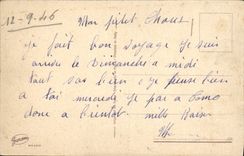 12-9-46
Mon petit
je fait bon voyage je suis
arrivé le Dimanche a midi
tout vas bien et je pense bien
a toi mercredi je par a Como
donc a bientot mille